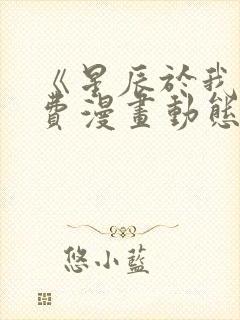 《星辰於我
費漫畫動態
悠小藍